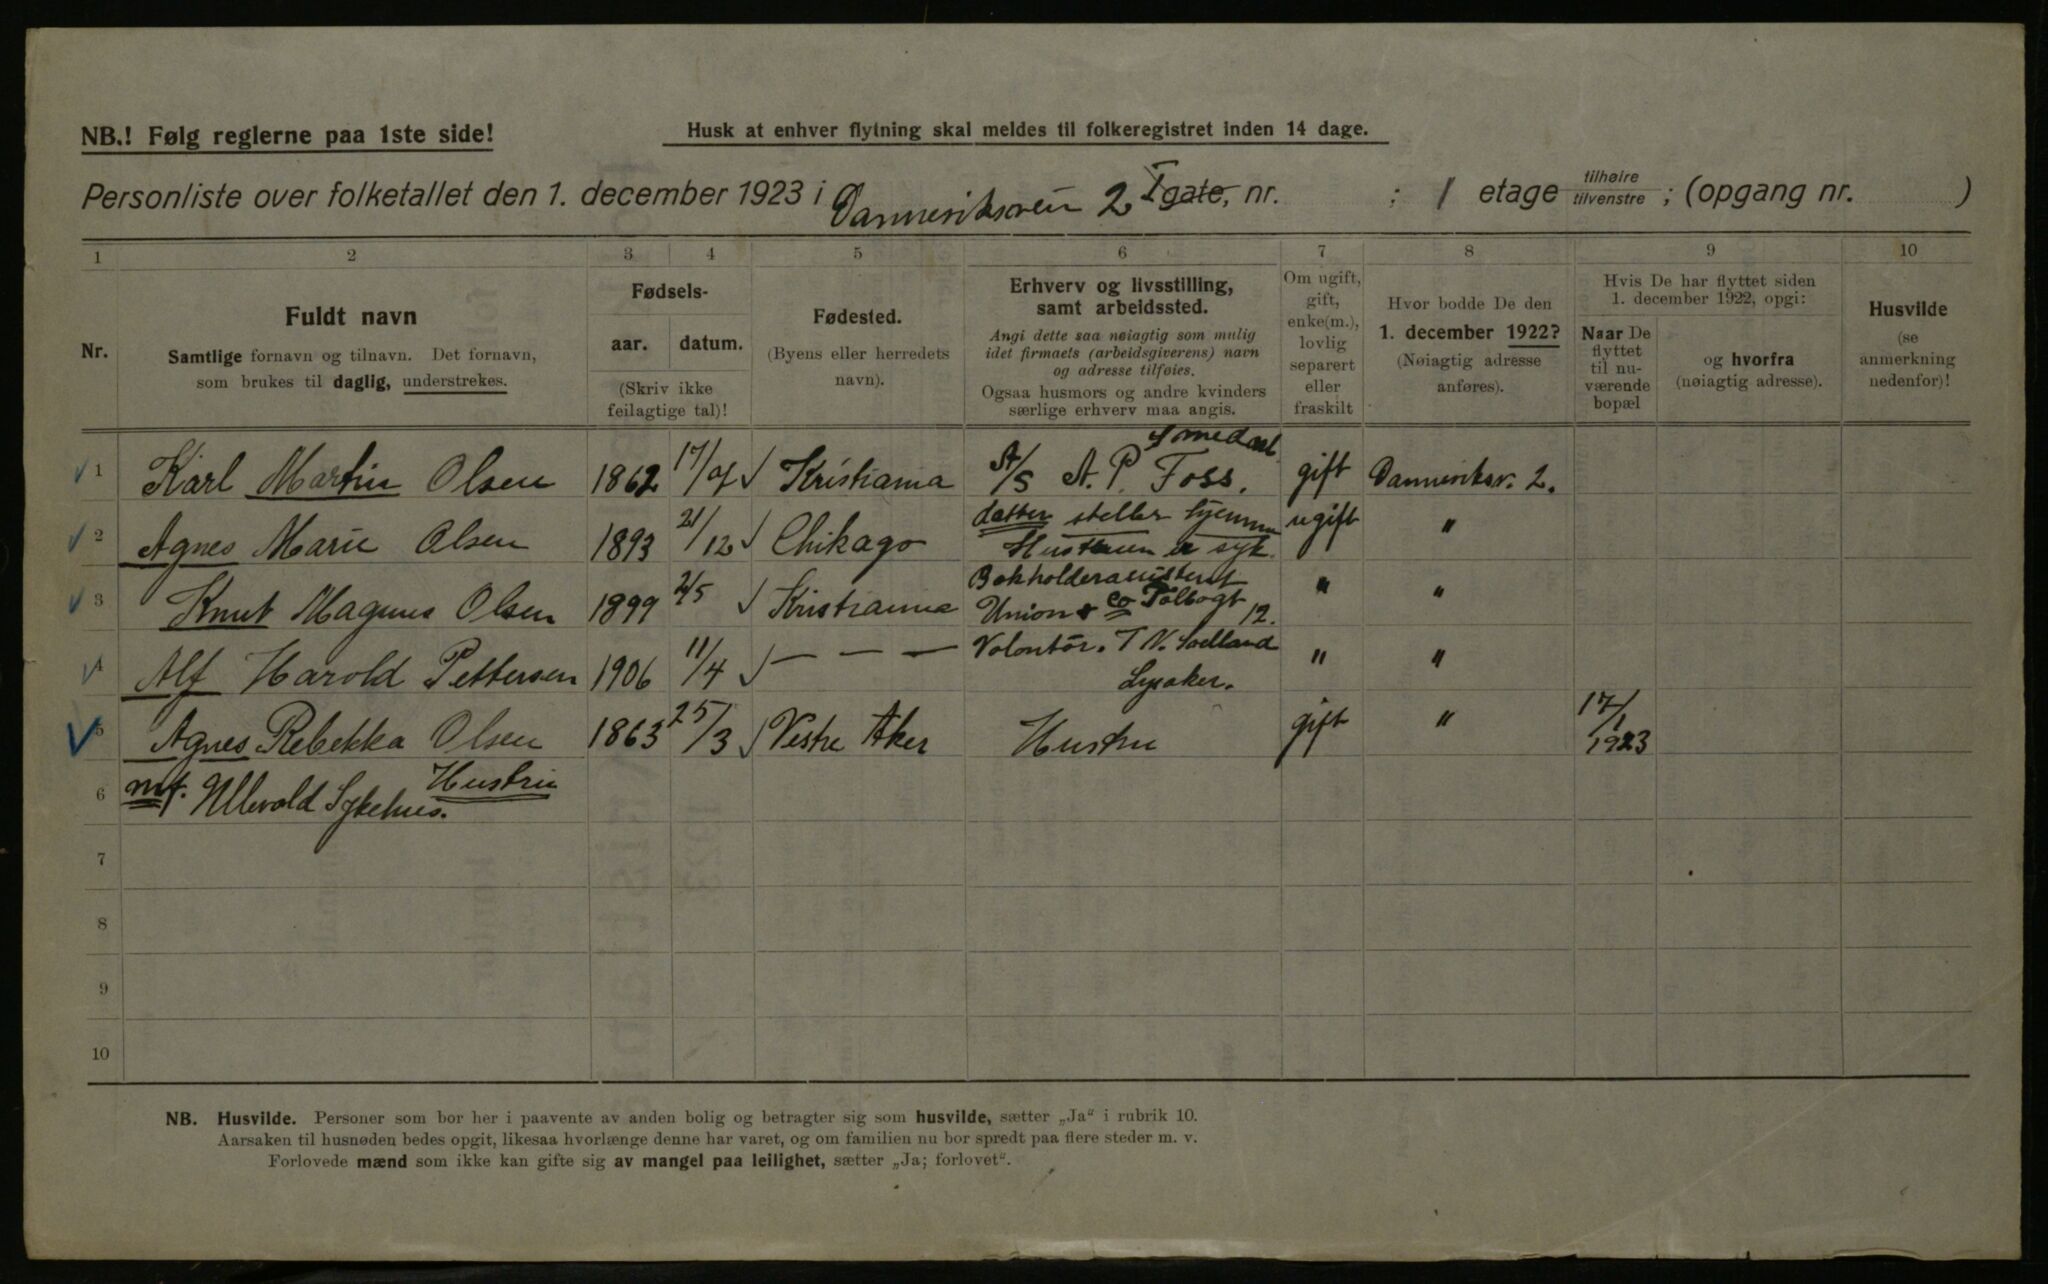 NB.! Følg reglerne paa 1ste side!
Husk at enhver flytning skal meldes til folkeregistret inden 14 dage.
Personliste over folketallet den 1. december 1923 i Danneriksvein 2 I gate, nr. ; 1 etage tilhøire tilvenstre ; (opgang nr. )
1 2 3 4 5 6 7 8 9 10
Nr.
Fuldt navn
Samtlige fornavn og tilnavn. Det fornavn,
som brukes til daglig, understrekes.
Fødsels-
aar. datum.
(Skriv ikke
feilagtige tal)!
Fødested.
(Byens eller herredets
navn).
Erhverv og livsstilling,
samt arbeidssted.
Angi dette saa nøiagtig som mulig
idet firmaets (arbeidsgiverens) navn
og adresse tilføies.
Ogsaa husmors og andre kvinders
særlige erhverv maa angis.
Om ugift,
gift,
enke(m.),
lovlig
separert
eller
fraskilt
Hvor bodde De den
1. december 1922?
(Nøiagtig adresse
anføres).
Hvis De har flyttet siden
1. december 1922, opgi:
Naar De
flyttet
til nu-
værende
bopæl
og hvorfra
(nøiagtig adresse).
Husvilde
(se
anmerkning
nedenfor)!
1 Karl Martin Olsen 1862 17/ Kristiania A/S A. P. Foss. gift Danneriksv. 2.
2 Agnes Marie Olsen 1893 21/12 Chikago datter steller hjemme ugift "
Hustruen er syk.
3 Knut Magnus Olsen 1899 2/5 Kristiania Bokholderassistent " "
Union & Co Tolbogt 12.
4 Alf Harold Pettersen 1906 11/4 — — — Volontør. T. N. " "
Lysaker.
5 Agnes Rebekka Olsen 1863 25/3 Vestre Aker Hustru gift " 17/1 1923
6 mf. Ullevold Sykehus. Hustru
7
8
9
10
NB. Husvilde. Personer som bor her i paavente av anden bolig og betragter sig som husvilde, sætter „Ja“ i rubrik 10.
Aarsaken til husnøden bedes opgit, likesaa hvorlænge denne har varet, og om familien nu bor spredt paa flere steder m. v.
Forlovede mænd som ikke kan gifte sig av mangel paa leilighet, sætter „Ja; forlovet“.